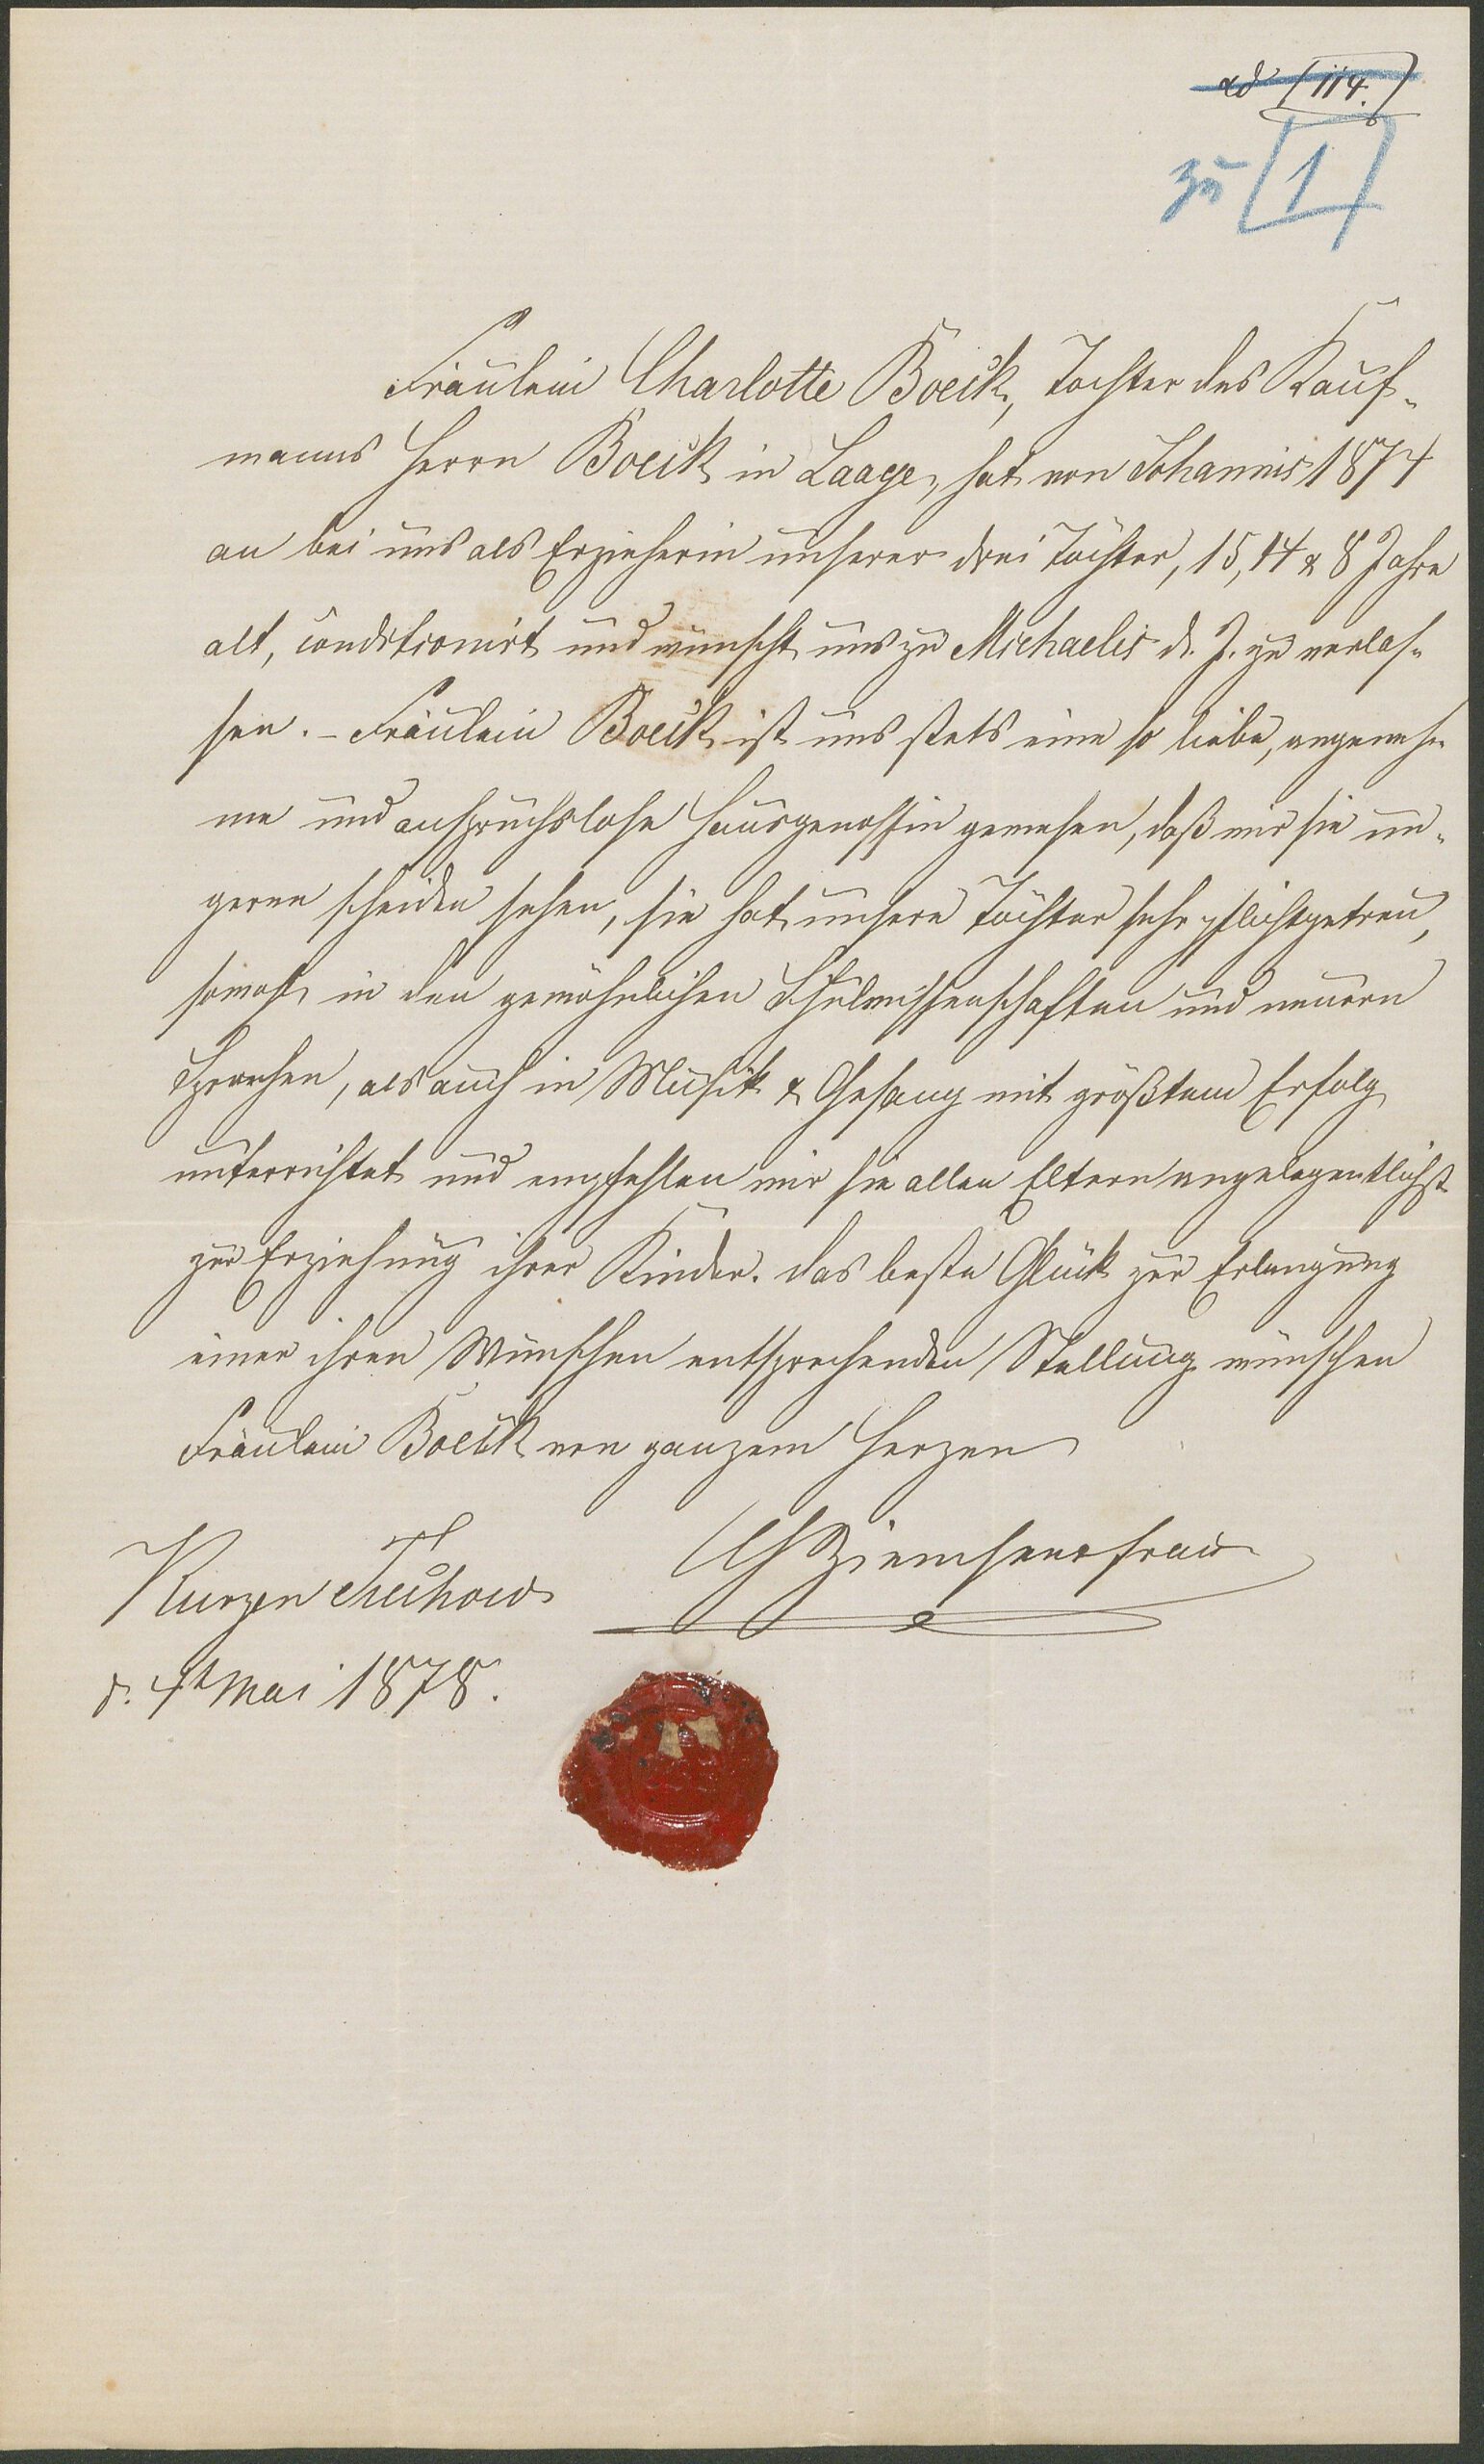 ad [114.]
zu [1]
Fräulein Charlotte Boeck, Tochter des Kauf-
manns Herrn Boeck in Laage, hat von Johannis 1874
an bei uns als Erzieherin unserer drei Töchter, 15, 14 & 8 Jahre
alt, conditionirt und wünscht uns zu Michaelis d. J. zu verlas-
sen. - Fräulein Boeck ist uns stets eine so liebe, angeneh-
me und anspruchslose Hausgenossin gewesen, daß wir sie un-
geren scheiden sehen, sie hat unsere Töchter sehr pflichtgetreu,
sowohl in den gewöhnlichen Schulwissenschaften und neuern
Sprachen, als auch in Musik & Gesang mit größtem Erfolg
unterrichtet und empfehlen wir sie allen Eltern angelegentlichst
zur Erziehung ihrer Kinder. Das beste Glück zur Erlangung
einer ihren Wünschen entsprechenden Stellung wünschen
Fräulein Boeck von ganzem Herzen
Kurzen Trechow Ziemsen & Frau
d. 4t Mai 1878.